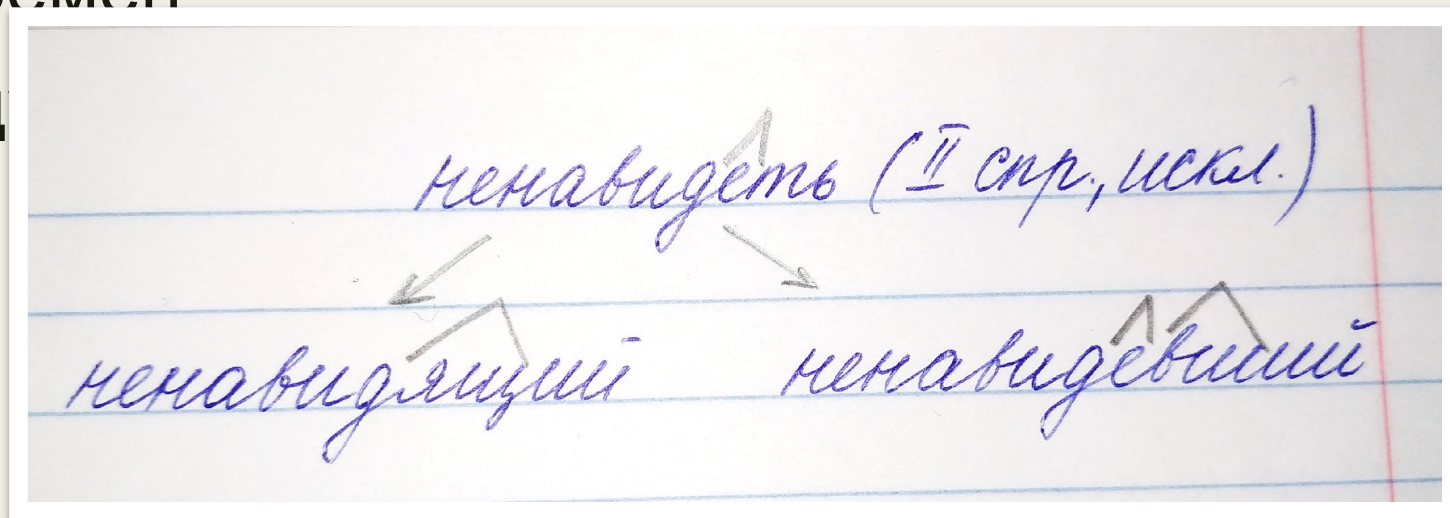 ненавидеть (II спр., искл.)
ненавидящий ненавидевший